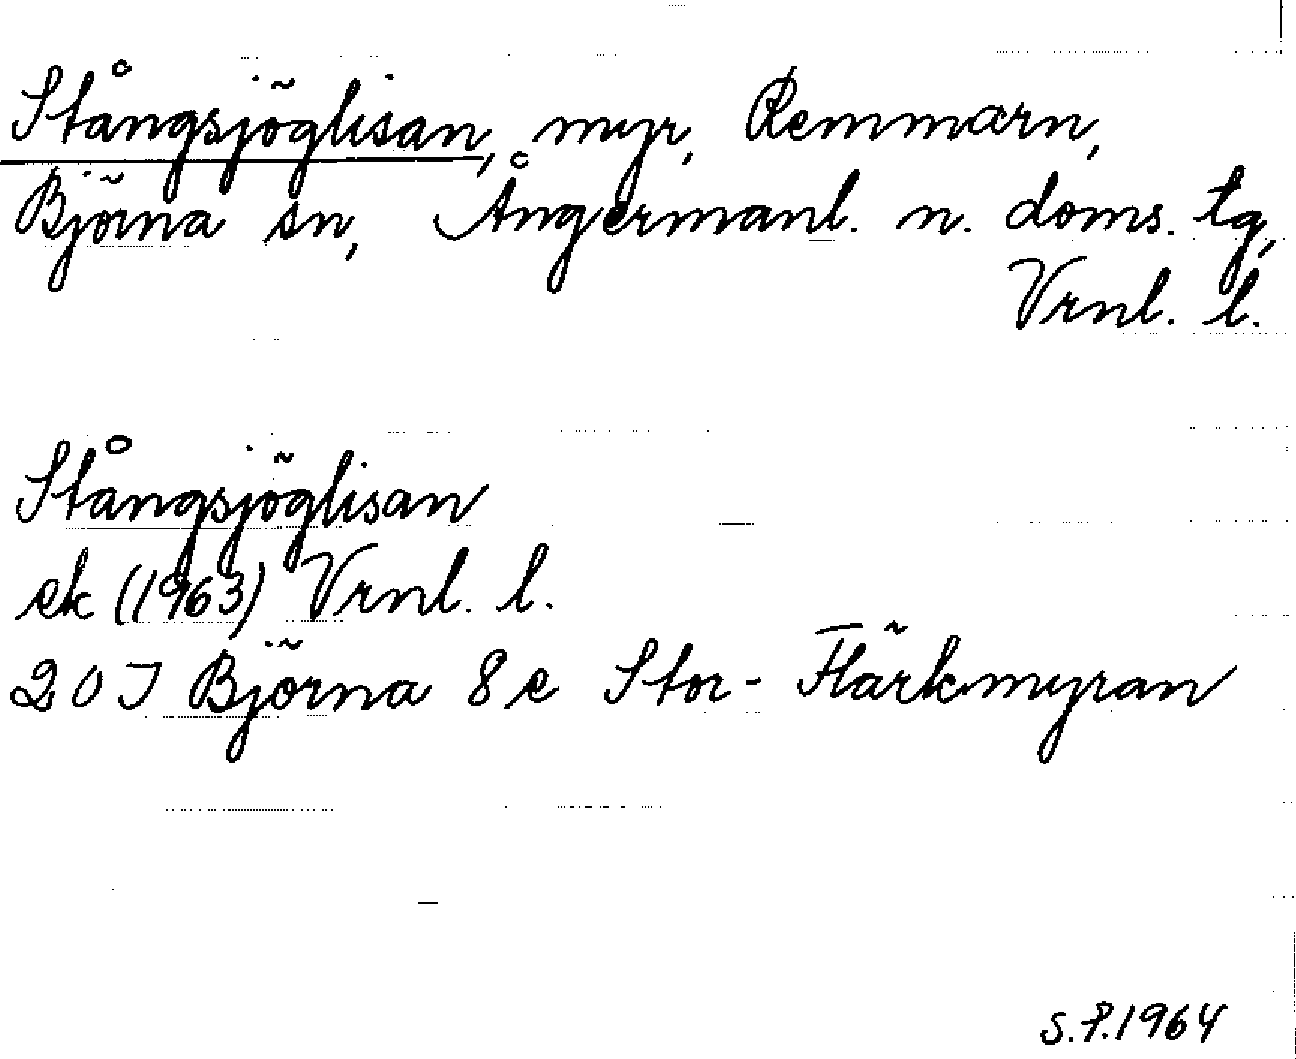 Stångsjöglisan, myr, Remmarn,
Björna sn, Ångermanl. n. doms. tg,
Vrnl. l.
Stångsjöglisan
ek (1963) Vrnl. l.
20 J Björna 8 e Stor-Flärkmyran
S.P.1964